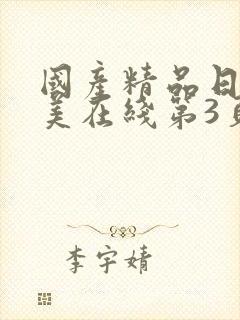 國產精品日
美在綫第3頁
李宇婧